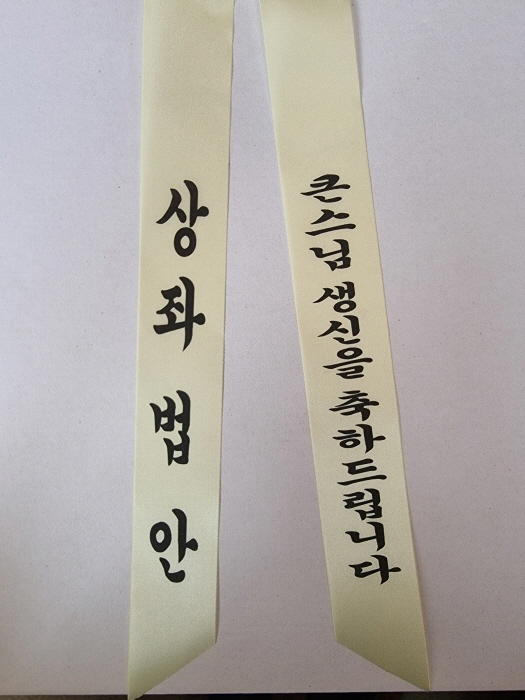 큰스님 생신을 축하드립니다
상좌 법안